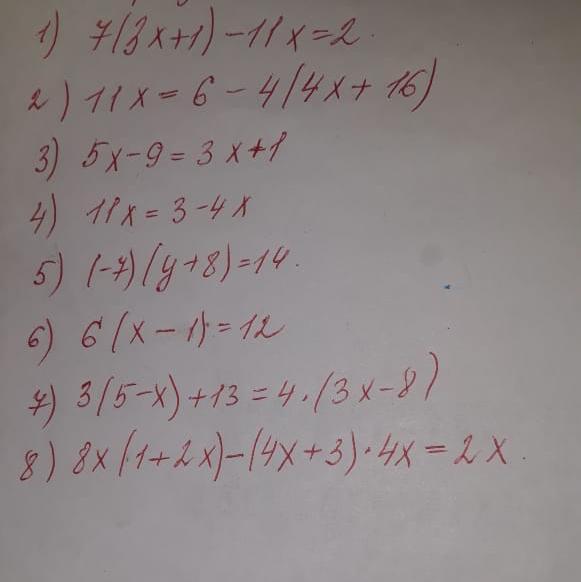 1) 7(3x+1)-11x=2.
2) 11x = 6 - 4(4x + 16)
3) 5x-9 = 3x+1
4) 11x = 3-4x
5) (-7)(y+8)=14.
6) 6(x - 1) = 12
7) 3(5-x)+13 = 4·(3x-8)
8) 8x(1+2x)-(4x+3)·4x = 2x.